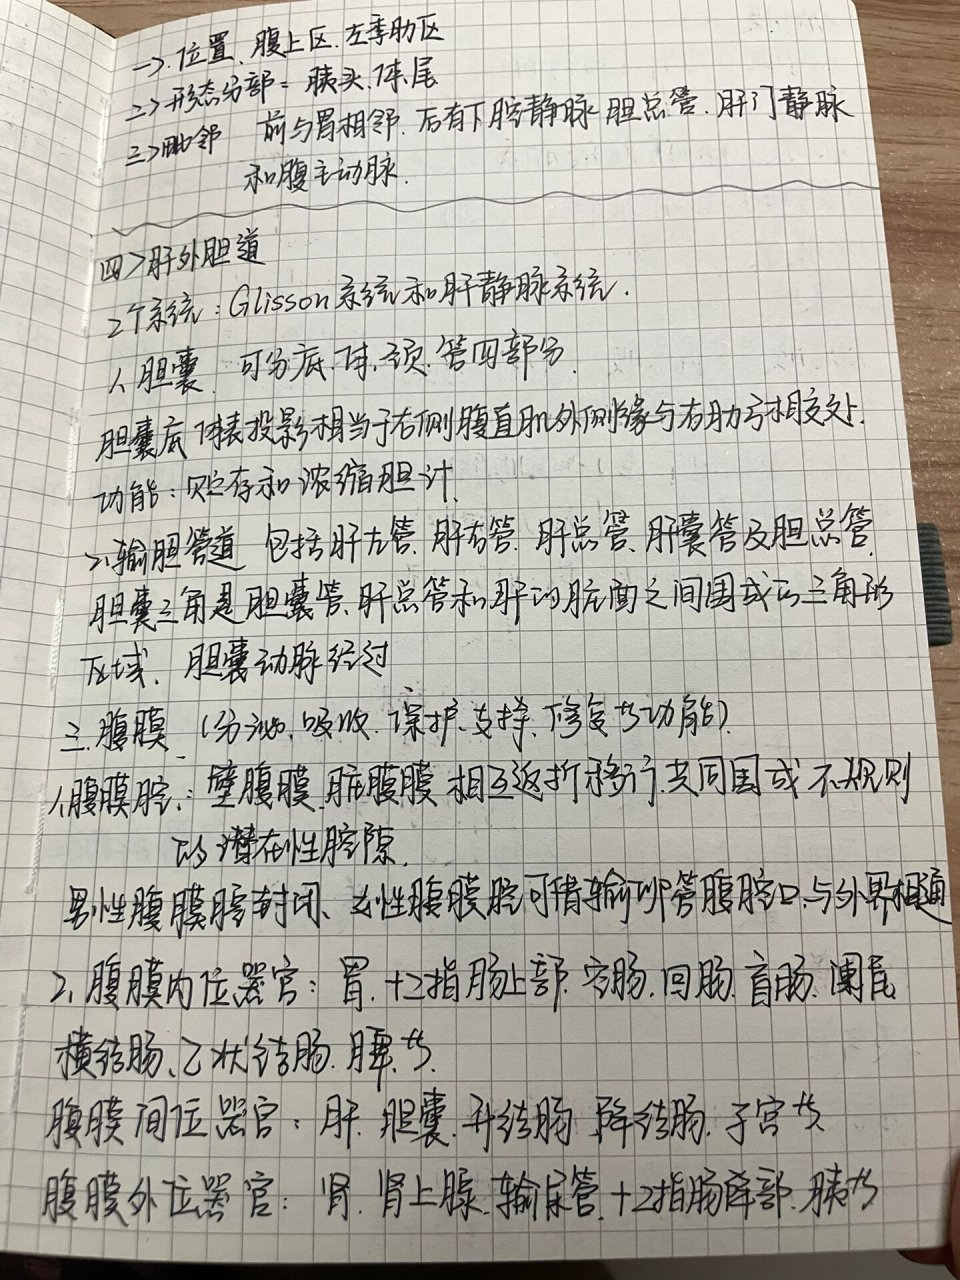 一>.位置、腹上区.左季肋区
二>形态分部= 胰头.体.尾
三>毗邻 前与胃相邻.后有下腔静脉 胆总管.肝门静脉
和腹主动脉.
四>肝外胆道
2个系统:Glisson系统和肝静脉系统.
1、胆囊 可分底.体.颈.管四部分.
胆囊底 体表投影相当于右侧腹直肌外侧缘与右肋弓相交处.
功能:贮存和浓缩胆汁.
2、输胆管道 包括肝左管.肝右管.肝总管、肝囊管及胆总管.
胆囊三角是胆囊管、肝总管和肝的脏面之间围成的三角形
区域、胆囊动脉经过
三.腹膜 (分泌、吸收.保护、支持、修复等功能).
1、腹膜腔:壁腹膜.脏膜膜 相互返折移行.共同围成不规则
的潜在性腔隙.
男性腹膜腔封闭、女性腹膜腔可借输卵管腹腔口.与外界相通
2、腹膜内位器官:胃.十二指肠上部.空肠.回肠.盲肠.阑尾
横结肠、乙状结肠.脾.等.
腹膜间位器官:肝.胆囊.升结肠.降结肠.子宫等
腹膜外位器官:肾.肾上腺.输尿管.十二指肠降部.胰等